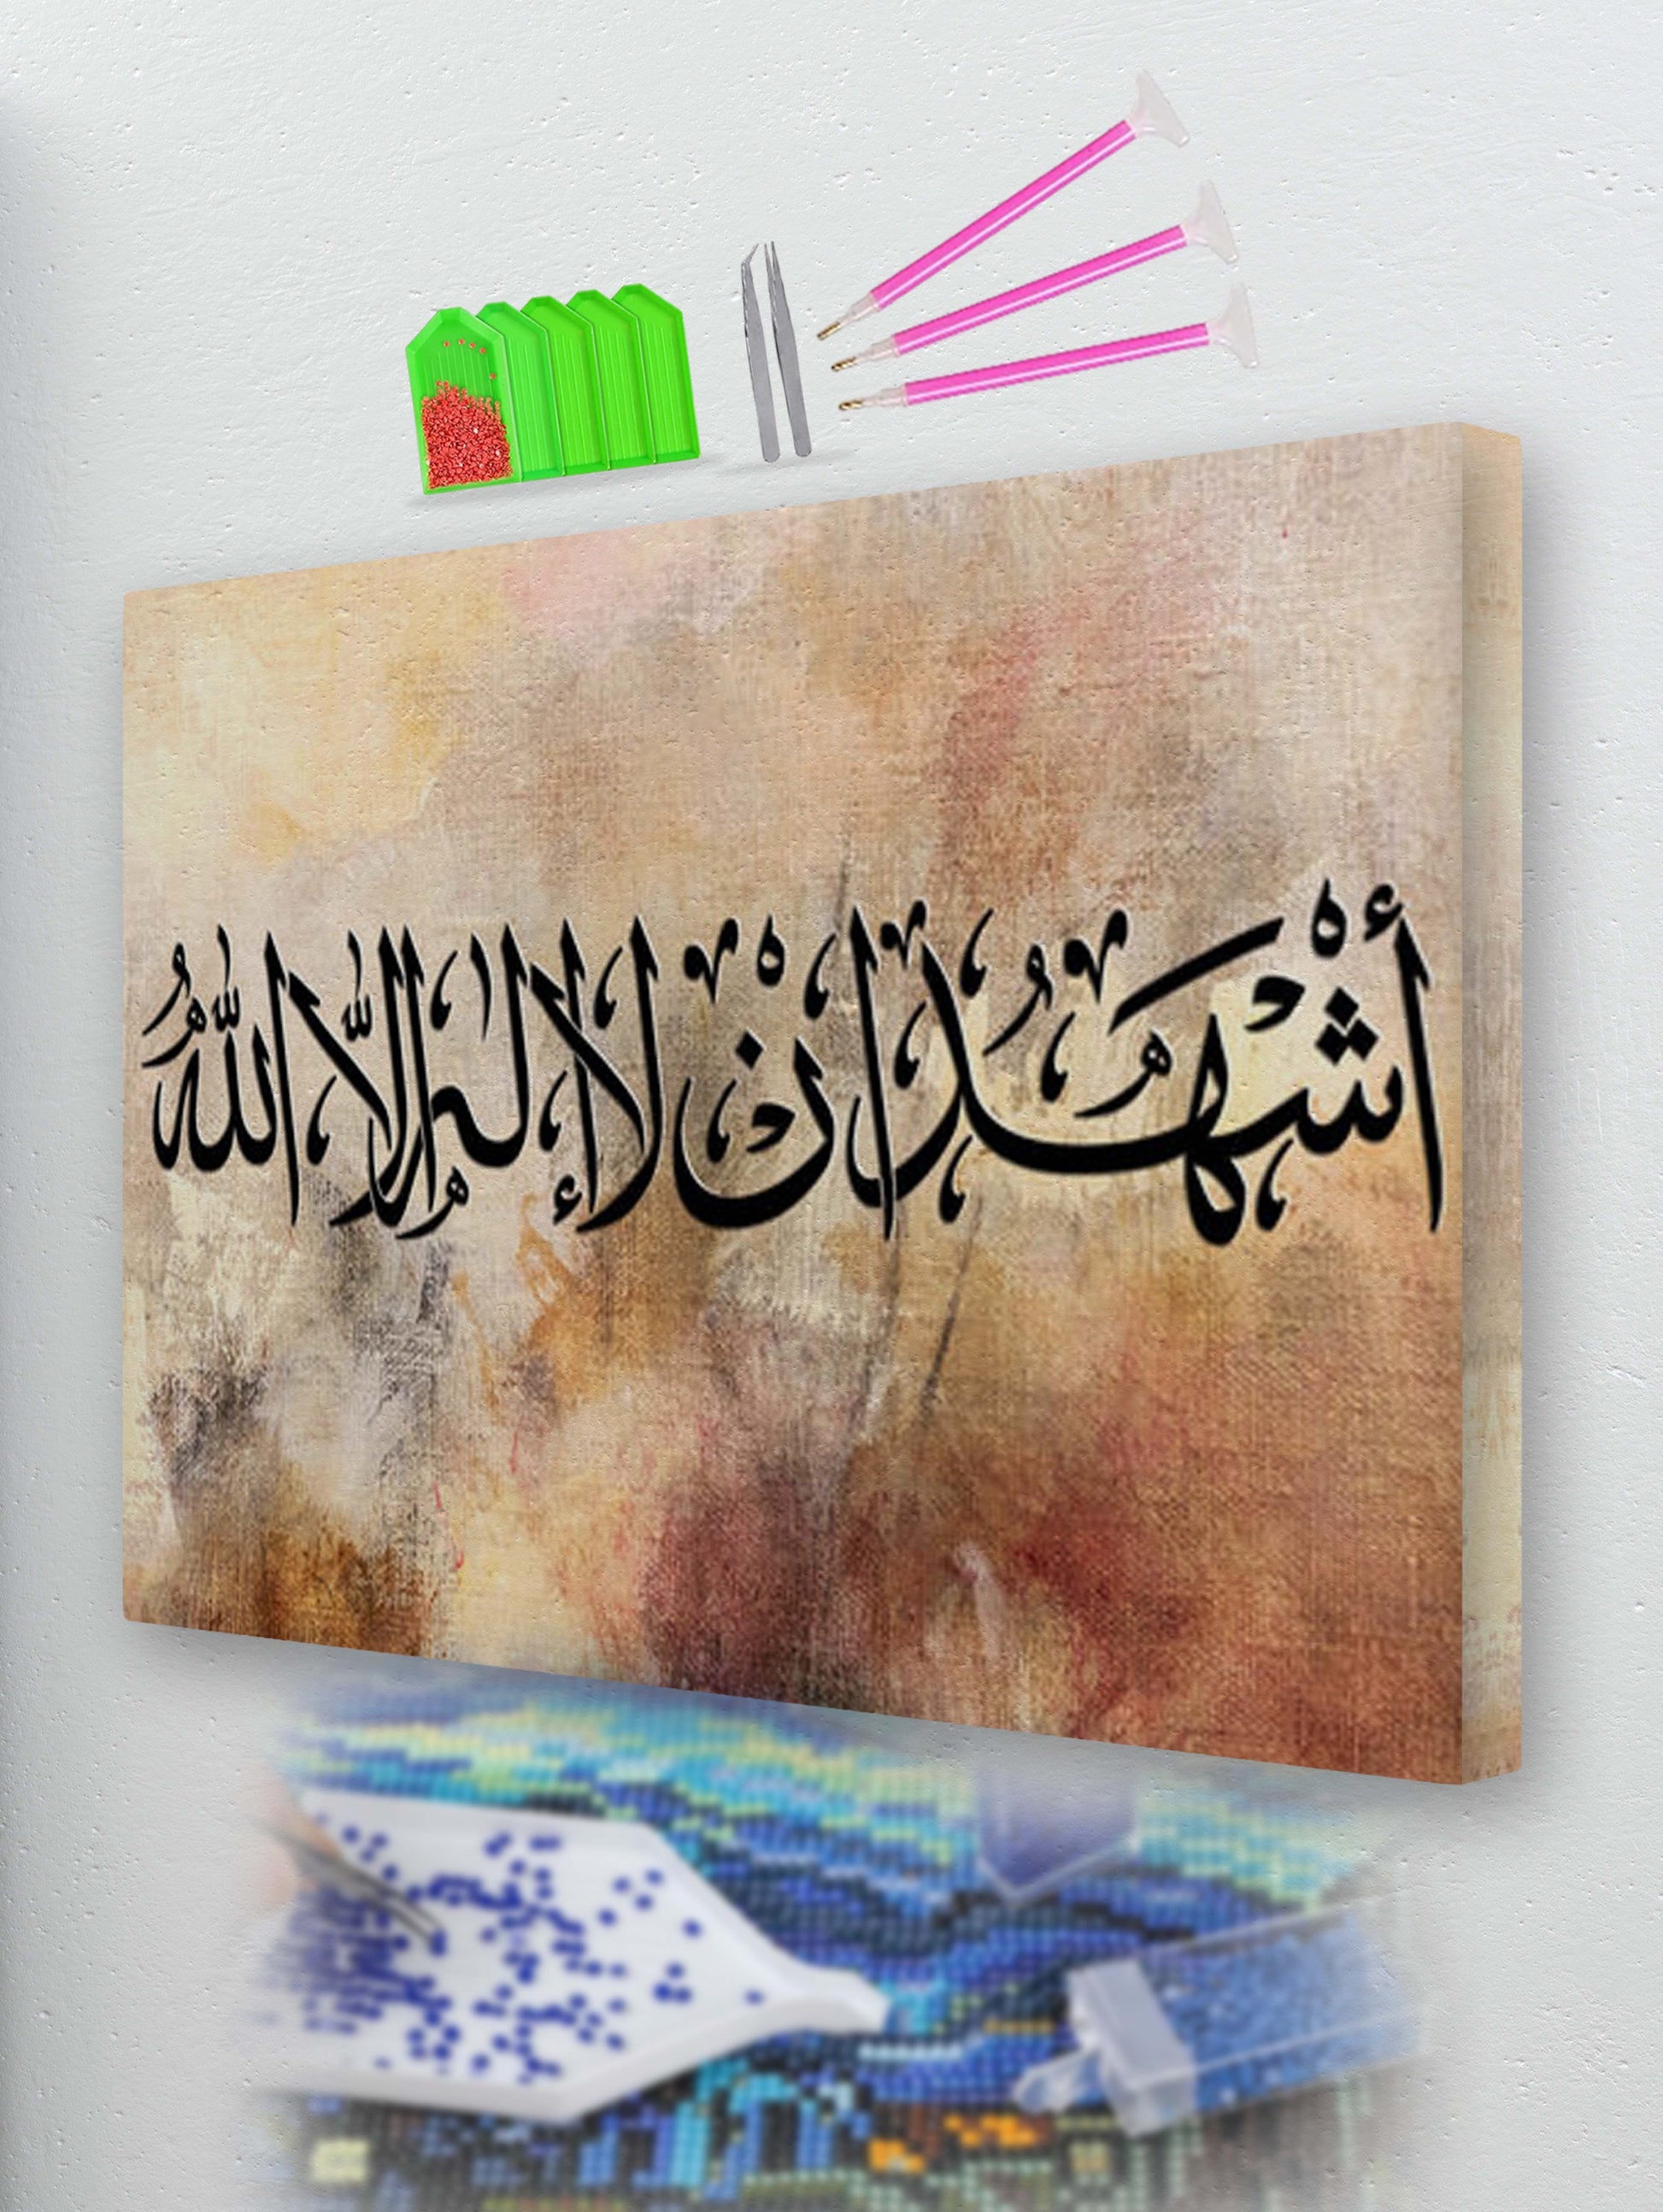 أَشْهَدُ انْ لَا إِلٰهَ إِلَّا اللّٰهُ